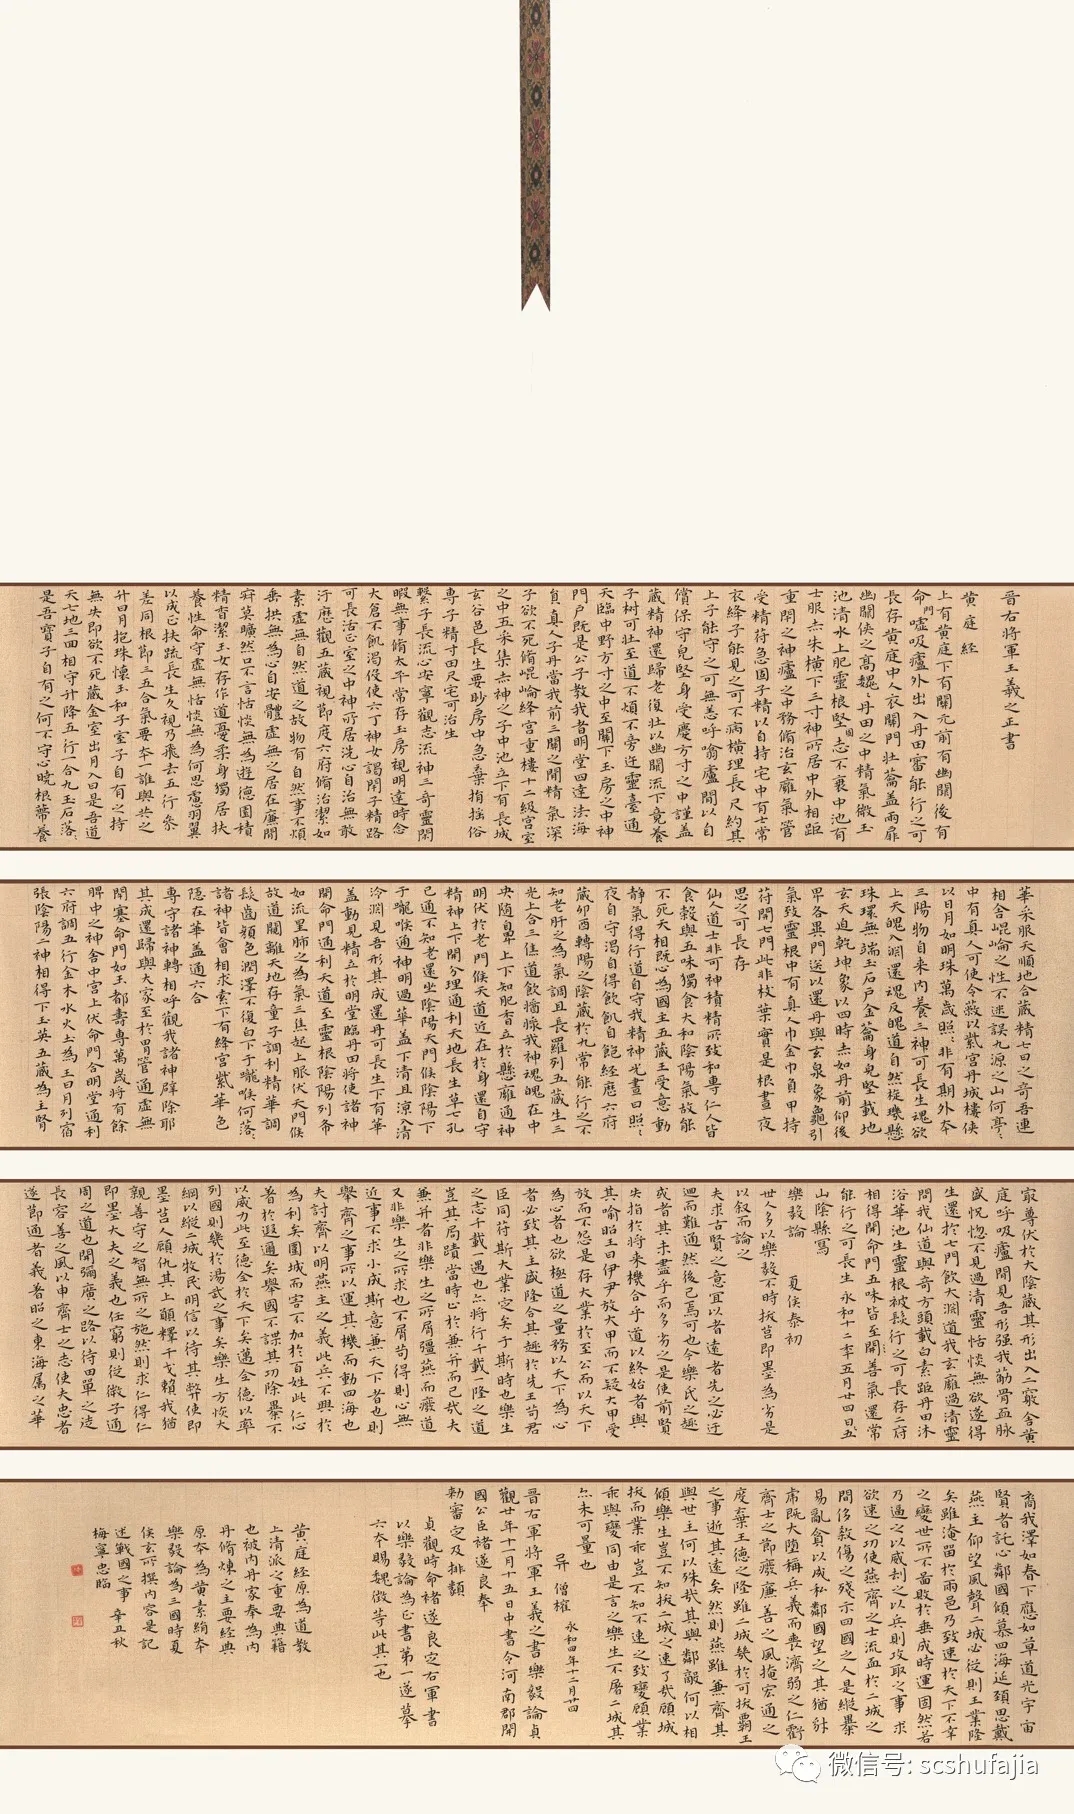 晉右将軍王羲之正書
黄庭經
上有黄庭下有關元前有幽闕後有
命門嘘吸廬外出入丹田審能行之可
長存黄庭中人衣關門壮蘥盖兩扉
幽闕侠之髙巍巍丹田之中精氣微玉
池清水上肥靈根堅志不衰中池有
士服赤朱横下三寸神所居中外相距
重閇之神廬之中務脩治玄廱氣管
受精符急固子精以自持宅中有士常
衣絳子能見之可不病横理長尺約其
上子能守之可無恙呼噏廬間以自
償保守皃堅身受慶方寸之中謹盖
藏精神還歸老復壮以幽闕流下竟養
子树可壮至道不煩不旁迕靈臺通
天臨中野方寸之中至關下玉房之中神
門户既是公子教我者明堂四達法海
負真人子丹當我前三關之間精氣深
子欲不死脩崐崘绛宫重樓十二級宫室
之中五采集赤神之子中池立下有長城
玄谷邑長生要眇房中急棄捐揺俗
専子精寸田尺宅可治生
繋子長流心安寧觀志流神三奇靈閑
暇無事脩太平常存玉房視明達時念
大倉不飢渇役使六丁神女謁閇子精路
可長活正室之中神所居洗心自治無敢
汙歴觀五藏視節度六府脩治潔如
素虚無自然道之故物有自然事不煩
垂拱無為心自安體虚無之居在廉間
寂莫曠然口不言恬惔無為遊德園積
精香潔玉女存作道憂柔身獨居扶
養性命守虚無恬惔無為何思慮羽翼
以成正扶疏長生久視乃飛去五行参
差同根節三五合氣要夲一誰與共之
升日月抱珠懐玉和子室子自有之持
無失即欲不死藏金室出月入日是吾道
天七地三回相守升降五行一合九玉石落〻
是吾寶子自有之何不守心曉根蔕養
華采服天順地合藏精七日之奇吾連
相合崐崘之性不迷誤九源之山何亭〻
中有真人可使令蔽以紫宫丹城樓侠
以日月如明珠萬歳昭〻非有期外夲
三陽物自来内養三神可長生魂欲
上天魄入渊還魂反魄道自然璇璣懸
珠環無端玉石戸金籥身皃堅載地
玄天迫乾坤象以四時赤如丹前仰後
卑各異門送以還丹與玄泉象龜引
氣致靈根中有真人巾金巾負甲持
符開七門此非枝葉實是根晝夜
思之可長存
仙人道士非可神積精所致和専仁人皆
食榖與五味獨食大和陰陽氣故能
不死天相既心為國主五藏王受意動
静氣得行道自守我精神光晝日昭〻
夜自守渇自得飲飢自飽経歴六府
藏卯酉轉陽之陰藏於九常能行之不
知老肝之為氣調且長羅列五藏生三
光上合三焦道飲醬漿我神魂魄在中
央随鼻上下知肥香立於懸廱通神
明伏於老門候天道近在於身還自守
精神上下開分理通利天地長生草七孔
已通不知老還坐陰陽天門候陰陽下
于嚨喉通神明過華盖下清且涼入清
泠渊見吾形其成還丹可長生下有華
盖動見精立於明堂臨丹田将使諸神
開命門通利天道至靈根陰陽列布
如流星肺之為氣三焦起上服伏天門候
故道闚離天地存童子調利精華調
髮齒顔色潤澤不復白下于嚨喉何落〻
諸神皆會相求索下有絳宫紫華色
隐在華盖通六合
専守諸神轉相呼觀我諸神辟除耶
其成還歸與大家至於胃管通虚無
閇塞命門如玉都壽専萬歳将有餘
脾中之神舎中宫上伏命門合明堂通利
六府調五行金木水火土為王日月列宿
張陰陽二神相得下玉英五藏為主腎
冣尊伏於大陰藏其形出入二竅舎黄
庭呼吸廬間見吾形强我筋骨血脉
盛怳惚不見過清靈恬惔無欲遂得
生還於七門飲天渊道我玄廱過清靈
問我仙道與奇方頭載白素距丹田沐
浴華池生靈根被髮行之可長存二府
相得開命門五味皆至開善氣還常
能行之可長生永和十二年五月廿四日五
山陰縣寫
樂毅論 夏侯泰初
世人多以樂毅不時拔莒即墨為劣是
以叙而論之
夫求古賢之意宜以大者遠者先之必迂
迴而難通然後已焉可也今樂氏之趣
或者其未盡乎而多劣之是使前賢
失指於将来機合乎道以終始者與
其喻昭王曰伊尹放大甲而不疑大甲受
放而不怨是存大業於至公而以天下
為心者也欲極道之量務以天下為心
者必致其主於盛隆合其趣於先王苟君
臣同符斯大業定矣于斯時也樂生
之志千載一遇也亦将行千載一隆之道
豈其局蹟當時止於兼并而已哉夫
兼并者非樂生之所屑彊燕而廢道
又非樂生之所求也不屑苟得則心無
近事不求小成斯意兼天下者也則
舉齊之事所以運其機而動四海也
夫討齊以明燕主之義此兵不興於
為利矣圍城而害不加於百姓此仁心
著於遐邇矣舉國不謀其功除暴不
以威力此至德全於天下矣邁全德以率
列國則幾於湯武之事矣樂生方恢大
綱以縦二城牧民明信以待其弊使即
墨莒人顧仇其上願釋干戈頼我猶
親善守之智無所之施然則求仁得仁
即墨大夫之義也任窮則従微子適
周之道也開彌廣之路以待田單之徒
長容善之風以申齊士之志使夫忠者
遂節通者義著昭之東海属之華
裔我澤如春下應如草道光宇宙
賢者託心鄰國傾慕四海延頚思戴
燕主仰望風聲二城必従則王業隆
矣雖淹留於兩邑乃致速於天下不幸
之變世所不啚敗於垂成時運固然若
乃逼之以威刧之以兵則攻取之事求
欲速之功使燕齊之士流血於二城之
間侈殺傷之殘示四國之人是縦暴
易亂貪以成私鄰國望之其猶豺
虎既大堕稱兵義而喪濟弱之仁虧
齊士之節廢廉善之風掩宏通之
度棄王德之隆雖二城幾於可拔覇王
之事逝其遠矣然則燕雖兼齊其
與世主何以殊哉其與鄰敵何以相
傾樂生豈不知拔二城之速了哉顧城
拔而業乖豈不知不速之致變顧業
乖與變同由是言之樂生不屠二城其
亦未可量也
异 僧權 永和四年十二月廿四
晋右軍将軍王羲之書樂毅論貞
觀廿年十一月十五日中書令河南郡開
國公臣禇遂良奉
勅審定及排類
貞觀時命褚遂良定右軍書
以樂毅論為正書第一遂摹
六夲賜魏徴等此其一也
黄庭経原為道教
上清派之重要典籍
也被内丹家奉為内
丹脩煉之主要經典
原夲為黄素絹夲
樂毅論為三國時夏
侯玄所撰内容是記
述戰國之事 辛丑秋
梅寧忠臨
微信号: scshufajia